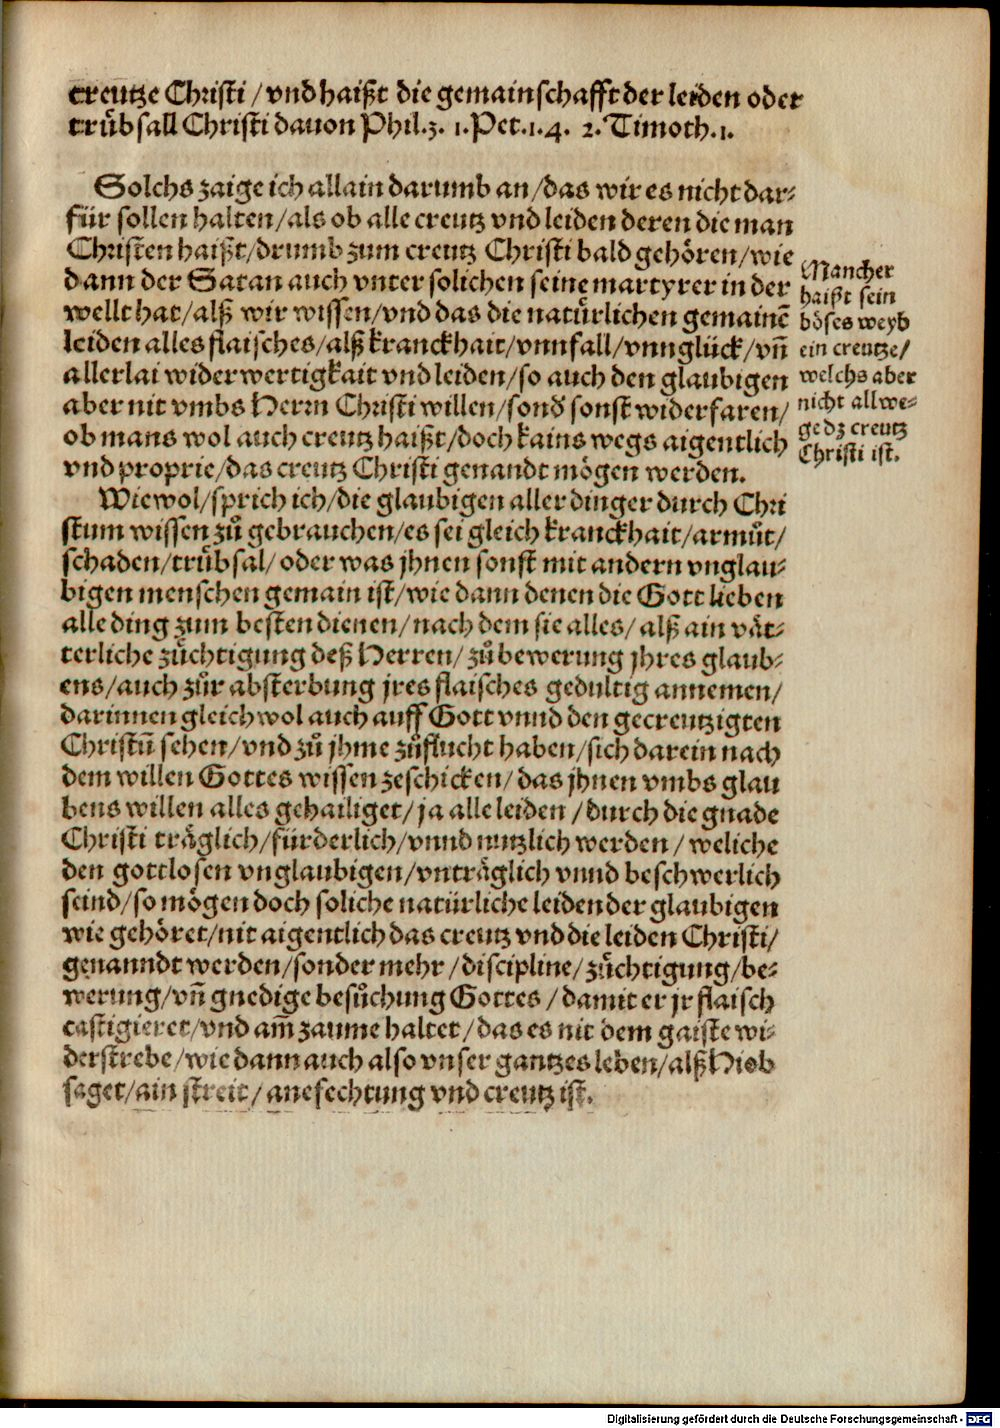 creutze Christi / vnd haißt die gemainschafft der leiden oder
truͤbsall Christi dauon Phil.3. 1.Pet.1.4. 2.Timoth.1.
Solchs zaige ich allain darumb an / das wir es nicht dar-
für sollen halten / als ob alle creutz vnd leiden deren die man
Christen haißt / drumb zum creutz Christi bald gehoͤren / wie
dann der Satan auch vnter solichen seine martyrer in der
wellt hat / alß wir wissen / vnd das die natuͤrlichen gemainē
leiden alles flaisches / alß kranckhait / vnnfall / vnnglück / vñ
allerlai widerwertigkait vnd leiden / so auch den glaubigen
aber nit vmbs Herrn Christi willen / sonď sonst widerfaren /
ob mans wol auch creutz haißt / doch kains wegs aigentlich
vnd proprie / das creutz Christi genandt moͤgen werden.
Mancher
haißt sein
boͤses weyb
ein creutze /
welchs aber
nicht allwe-
ge dz creutz
Christi ist.
Wiewol / sprich ich / die glaubigen aller dinger durch Chri
stum wissen zuͦ gebrauchen / es sei gleich kranckhait / armuͦt /
schaden / truͤbsal / oder was jhnen sonst mit andern vnglau-
bigen menschen gemain ist / wie dann denen die Gott lieben
alle ding zum besten dienen / nach dem sie alles / alß ain vaͤt-
terliche zuͤchtigung deß Herren / zuͦ bewerung jhres glaub-
ens / auch zuͦr absterbung jres flaisches gedultig annemen /
darinnen gleichwol auch auff Gott vnnd den gecreutzigten
Christū sehen / vnd zuͦ jhme zuͦflucht haben / sich darein nach
dem willen Gottes wissen zeschicken / das jhnen vmbs glau
bens willen alles gehailiget / ja alle leiden / durch die gnade
Christi traͤglich / fürderlich / vnnd nutzlich werden / weliche
den gottlosen vnglaubigen / vntraͤglich vnnd beschwerlich
seind / so moͤgen doch soliche natürliche leiden der glaubigen
wie gehoͤret / nit aigentlich das creutz vnd die leiden Christi /
genanndt werden / sonder mehr / discipline / zuͤchtigung / be-
werung / vñ gnedige besuͦchung Gottes / damit er jr flaisch
castigieret / vnd am̃ zaume haltet / das es nit dem gaiste wi-
derstrebe / wie dann auch also vnser gantzes leben / alß Hiob
saget / ain streit / anefechtung vnd creutz ist.
Digitalisierung gefördert durch die Deutsche Forschungsgemeinschaft - DFG